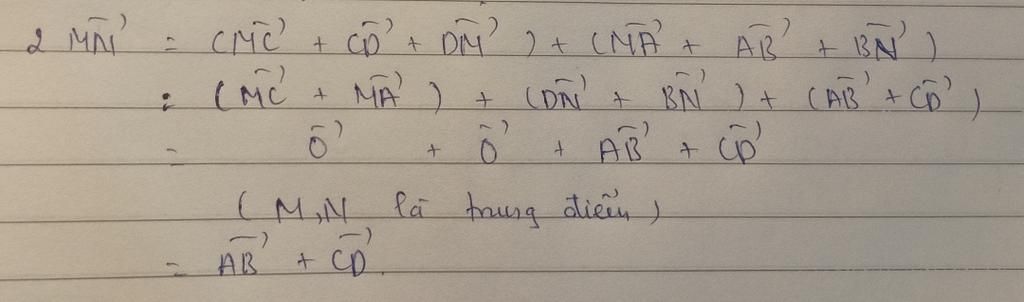 2 MN⃗ = (MC⃗ + CD⃗ + DM⃗) + (MA⃗ + AB⃗ + BN⃗)
= (MC⃗ + MA⃗) + (DN⃗ + BN⃗) + (AB⃗ + CD⃗)
= 0⃗ + 0⃗ + AB⃗ + CD⃗
(M,N là trung điểm)
= AB⃗ + CD⃗.